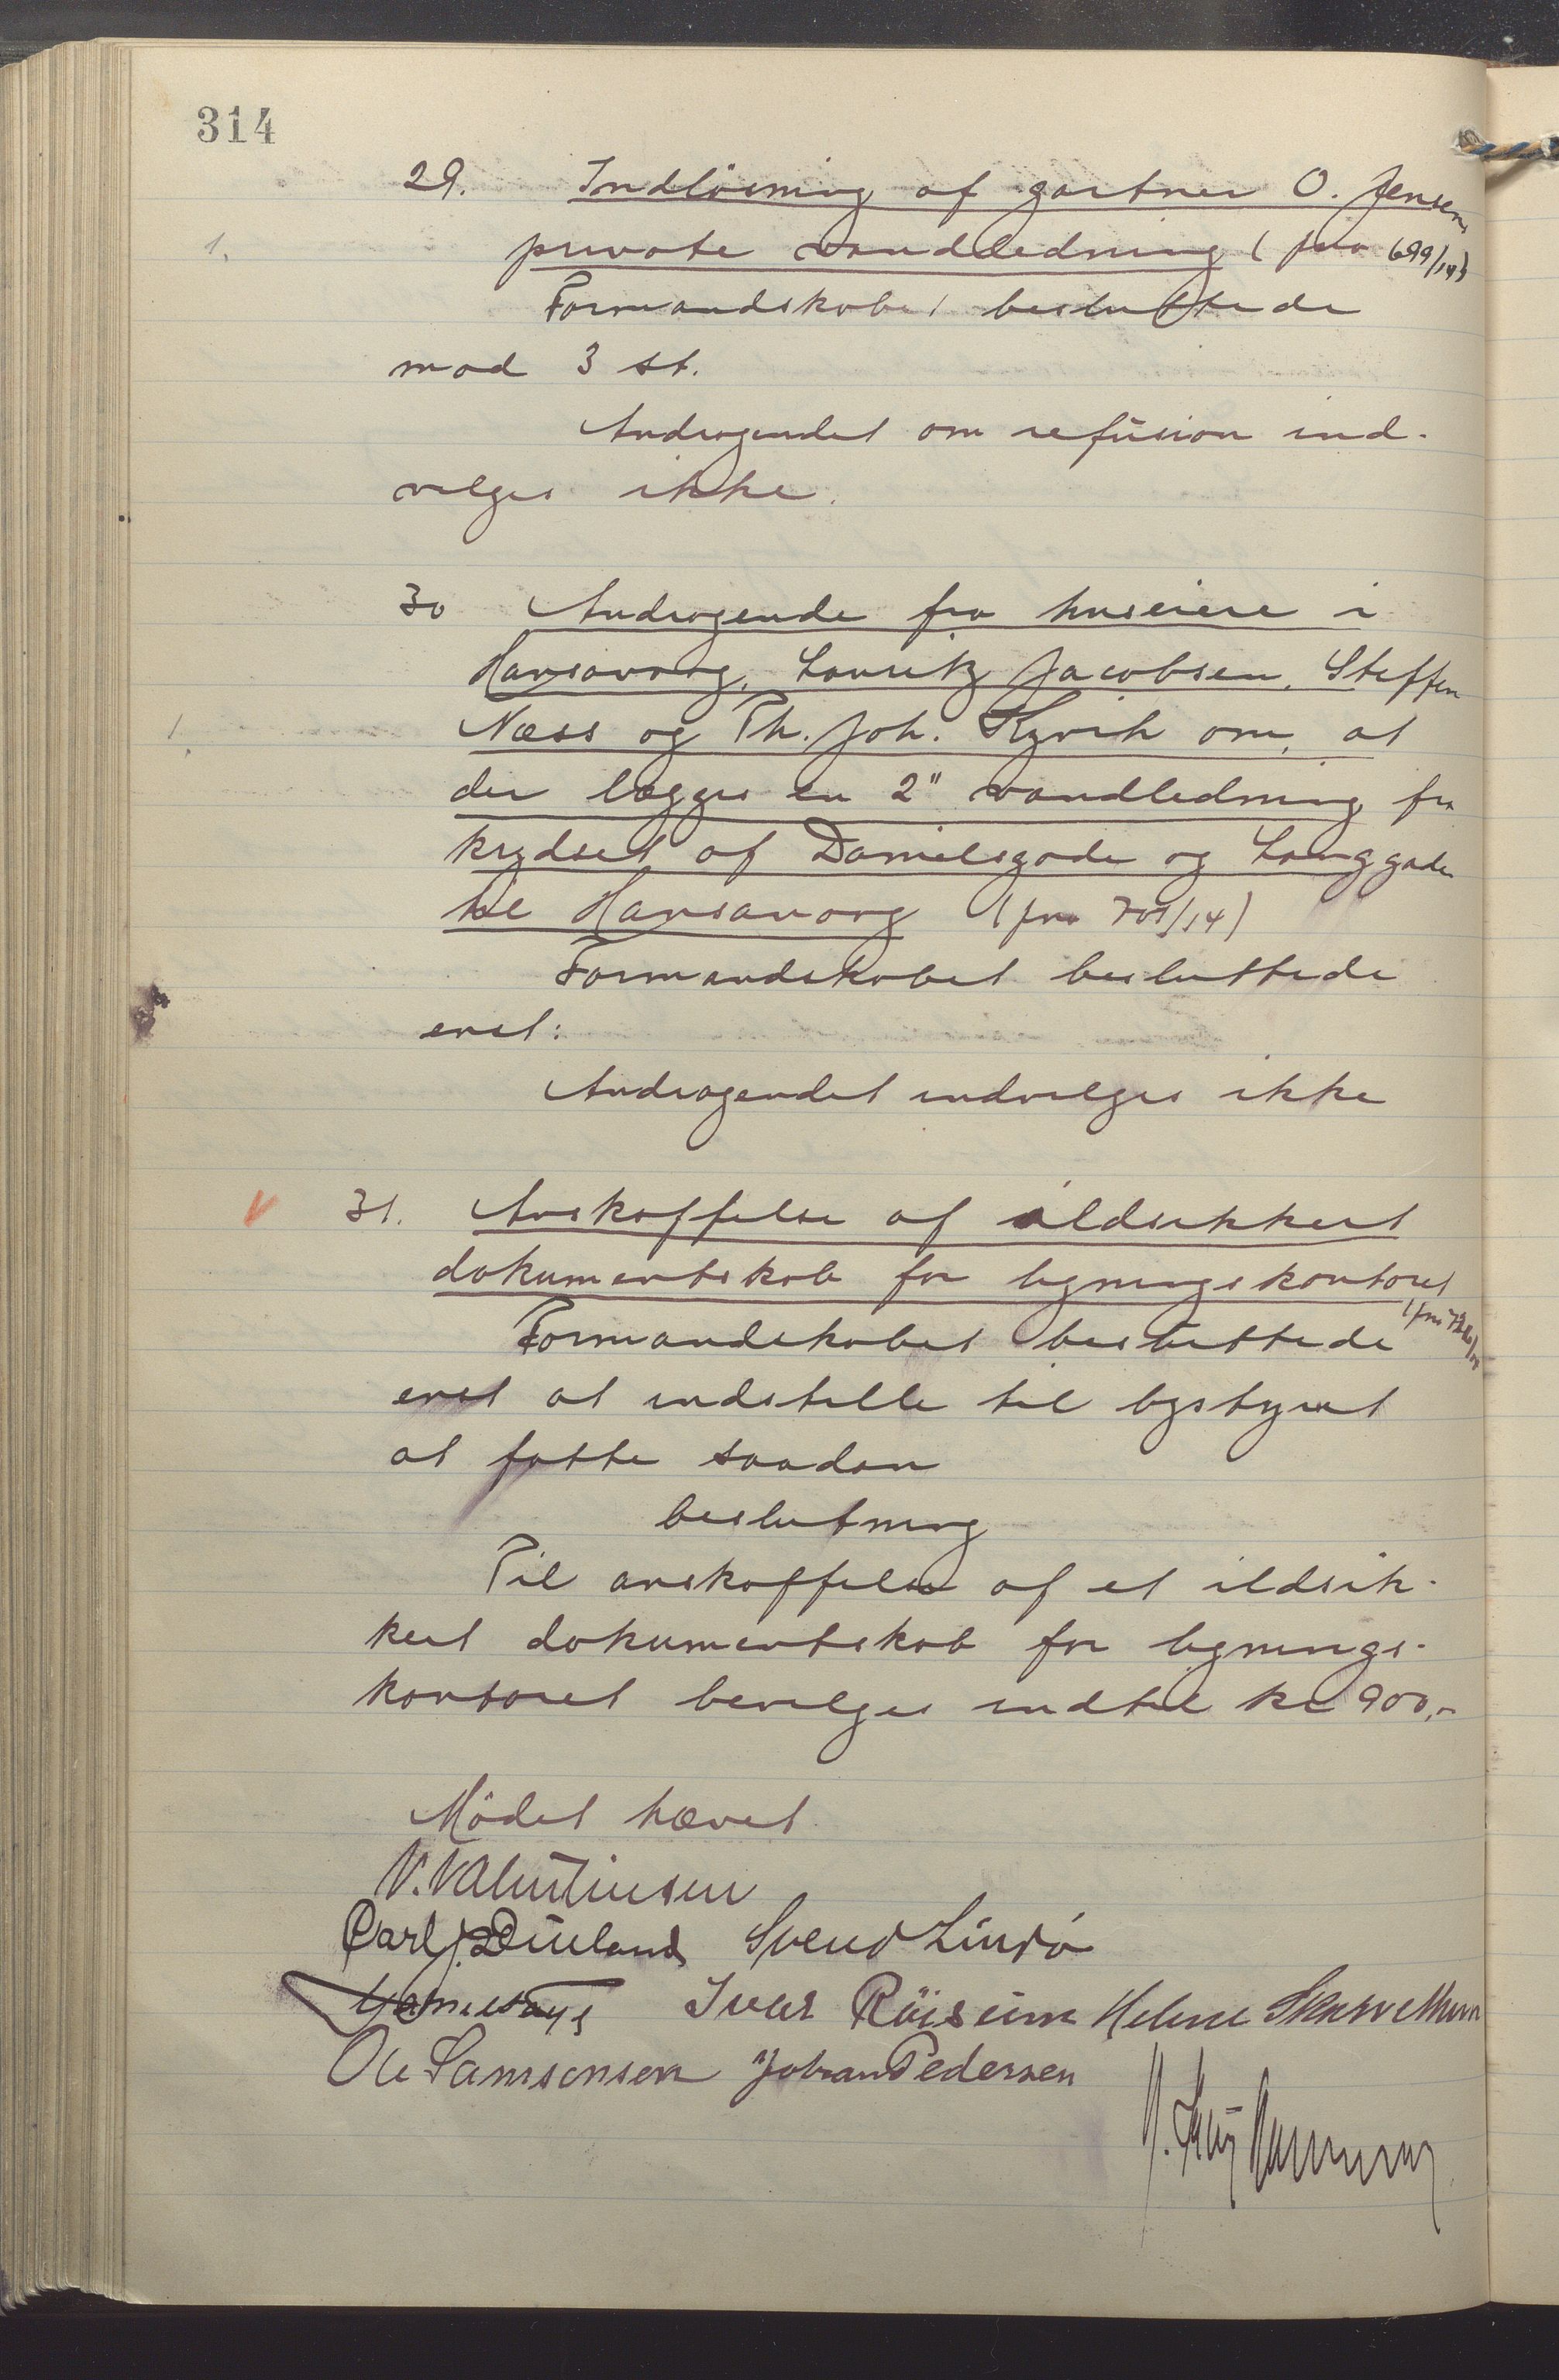 314
29. Indløsning af gartner O. Jensens
1. private vandledning (jno 699/14)
Formandskabet besluttede
mod 3 st.
Andragendet om refusion ind-
vilges ikke.
30 Andragende fra huseiere i
Hansavaag, Lauritz Jacobsen, Steffen
1. Næss og Th. Joh. Kyvik om, at
der lægges en 2" vandledning fra
krydset af Danielsgade og Langgaden
til Hansavaag (jno 701/14)
Formandskabet besluttede
enst:
Andragendet indvilges ikke
31. Anskaffelse af ildsikkert
dokumentskab for ligningskontoret
Formandskabet besluttede
enst at indstille til bystyret
at fatte saadan
beslutning
Til anskaffelse af et ildsik-
kert dokumentskab for lignings-
kontoret bevilges indtil kr 900,-
Mödet hævet
V. Valentinsen
Carl J. Dueland Svend Lindö
Iver Röiseim Helene
Ole Samsonsen Johan Pedersen